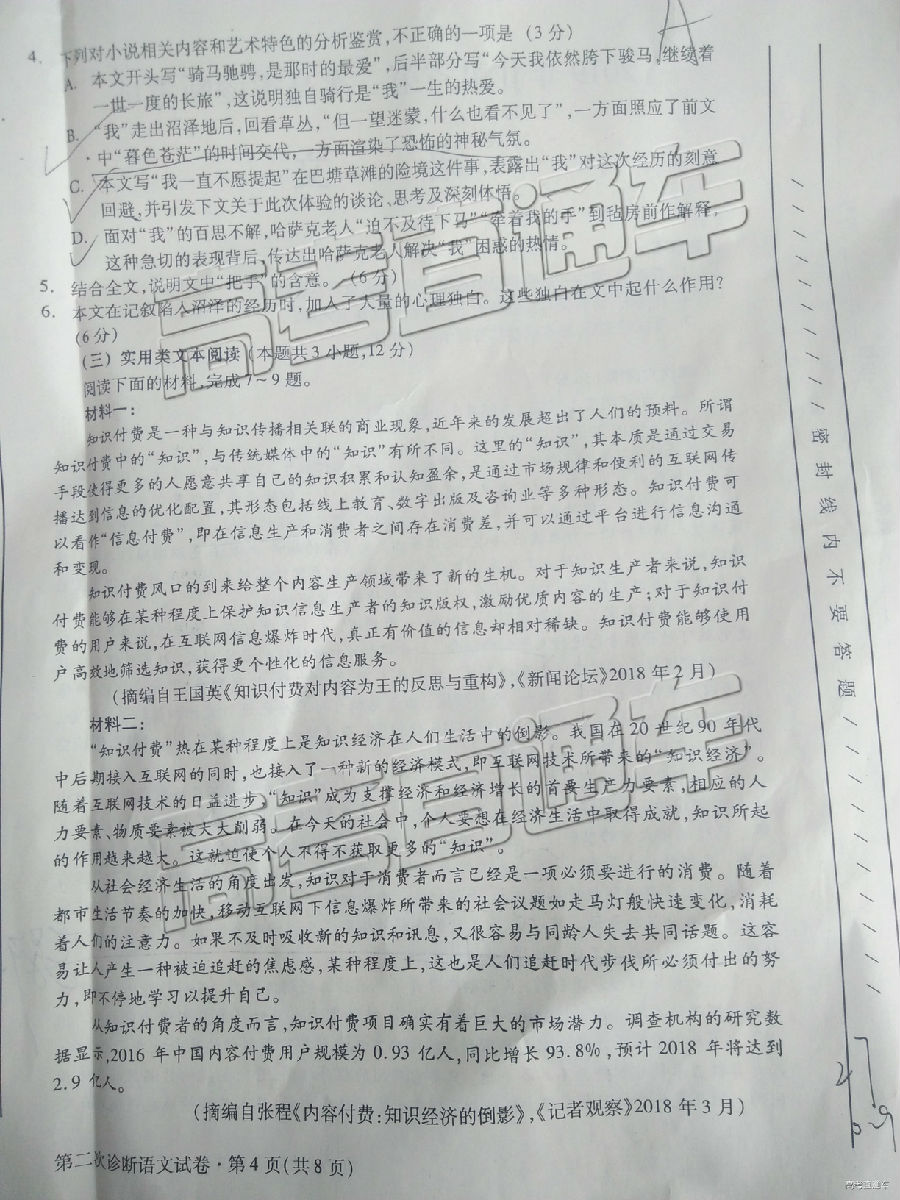 A
4. 下列对小说相关内容和艺术特色的分析鉴赏,不正确的一项是 (3分)
A. 本文开头写“骑马驰骋,是那时的最爱”,后半部分写“今天我依然胯下骏马,继续着
一世一度的长旅”,这说明独自骑行是“我”一生的热爱。
B. “我”走出沼泽地后,回看草丛,“但一望迷蒙,什么也看不见了”,一方面照应了前文
中“暮色苍茫”的时间交代,一方面渲染了恐怖的神秘气氛。
C. 本文写“我一直不愿提起”在巴塘草滩的险境这件事,表露出“我”对这次经历的刻意
回避,并引发下文关于此次体验的谈论、思考及深刻体悟。
D. 面对“我”的百思不解,哈萨克老人“迫不及待下马”“牵着我的手”到毡房前作解释,
这种急切的表现背后,传达出哈萨克老人解决“我”困惑的热情。
5. 结合全文,说明文中“把手”的含意。(6分)
6. 本文在记叙陷入沼泽的经历时,加入了大量的心理独白。这些独白在文中起什么作用?
(6分)
(三) 实用类文本阅读 (本题共3小题,12分)
阅读下面的材料,完成7~9题。
材料一:
知识付费是一种与知识传播相关联的商业现象,近年来的发展超出了人们的预料。所谓
知识付费中的“知识”,与传统媒体中的“知识”有所不同。这里的“知识”,其本质是通过交易
手段使得更多的人愿意共享自己的知识积累和认知盈余,是通过市场规律和便利的互联网传
播达到信息的优化配置,其形态包括线上教育、数字出版及咨询业等多种形态。知识付费可
以看作“信息付费”,即在信息生产和消费者之间存在消费差,并可以通过平台进行信息沟通
和变现。
知识付费风口的到来给整个内容生产领域带来了新的生机。对于知识生产者来说,知识
付费能够在某种程度上保护知识信息生产者的知识版权,激励优质内容的生产;对于知识付
费的用户来说,在互联网信息爆炸时代,真正有价值的信息却相对稀缺。知识付费能够使用
户高效地筛选知识,获得更个性化的信息服务。
(摘编自王国英《知识付费对内容为王的反思与重构》,《新闻论坛》2018年2月)
材料二:
“知识付费”热在某种程度上是知识经济在人们生活中的倒影。我国在20世纪90年代
中后期接入互联网的同时,也接入了一种新的经济模式,即互联网技术所带来的“知识经济”。
随着互联网技术的日益进步,“知识”成为支撑经济和经济增长的首要生产力要素,相应的人
力要素、物质要素被大大削弱。在今天的社会中,个人要想在经济生活中取得成就,知识所起
的作用越来越大。这就迫使个人不得不获取更多的“知识”。
从社会经济生活的角度出发,知识对于消费者而言已经是一项必须要进行的消费。随着
都市生活节奏的加快,移动互联网下信息爆炸所带来的社会议题如走马灯般快速变化,消耗
着人们的注意力。如果不及时吸收新的知识和讯息,又很容易与同龄人失去共同话题。这容
易让人产生一种被迫追赶的焦虑感,某种程度上,这也是人们追赶时代步伐所必须付出的努
力,即不停地学习以提升自己。
从知识付费者的角度而言,知识付费项目确实有着巨大的市场潜力。调查机构的研究数
据显示,2016年中国内容付费用户规模为0.93亿人,同比增长93.8%,预计2018年将达到
2.9亿人。
(摘编自张程《内容付费:知识经济的倒影》,《记者观察》2018年3月)
第二次诊断语文试卷·第4页(共8页)
密封线内不要答题
高考直通车
高考直通车
高考直通车